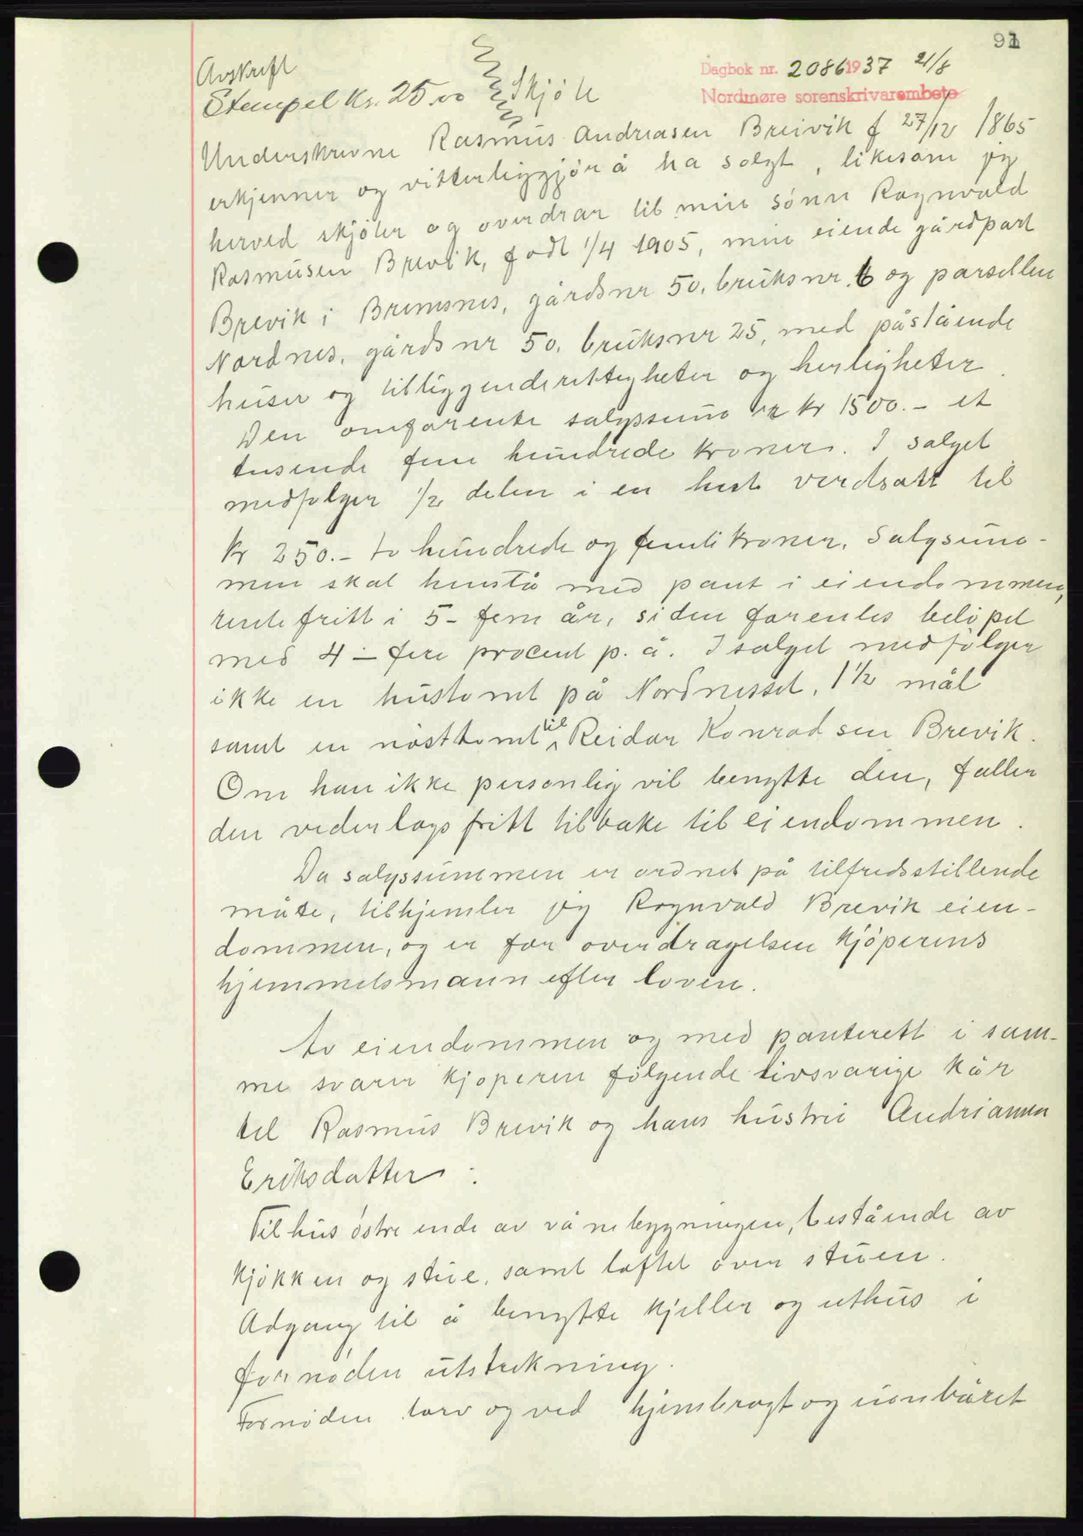 91
Avskrift
Dagbok nr. 2086 1937 21/8
Nordmøre sorenskrivarembete
Stempel Kr. 25.00 Skjöte
Underskrevne Rasmus Andreasen Breivik f 27/12 1865
erkjenner og vitterliggjör å ha solgt, likesom jeg
herved skjöter og overdrar til min sönn Ragnvald
Rasmusen Brevik, födt 1/4 1905, min eiende gårdpart
Brevik i Bremsnes, gårdsnr 50, bruksnr. 6 og parsellen
Nordnes, gårds nr 50, bruksnr 25, med påstående
huser og tilliggende rettigheter og herligheter.
Den omforente salgssum er kr 1500.- et
tusende fem hundrede kroner. I salget
medfölger 1/2 delen i en hest verdsatt til
kr 250.- to hundrede og femti kroner. Salgsum-
men skal henstå med pant i eiendommen,
rentefritt i 5- fem år, siden forentes belöpet
med 4 - fire procent p. å. I salget medfölger
ikke en hustomt på Nordnesset, 1 1/2 mål
samt en nösttomt til Reidar Konradsen Brevik.
Om han ikke personlig vil benytte den, faller
den vederlagsfritt tilbake til eiendommen.
Da salgssummen er ordnet på tilfredsstillende
måte, tilhjemler jeg Ragnvald Brevik eien-
dommen, og er for overdragelsen kjöperens
hjemmelsmann efter loven.
Av eiendommen og med panterett i sam-
me svarer kjöperen fölgende livsvarige kår
til Rasmus Brevik og hans hustru Andrianna
Eriksdatter:
Til hus östre ende av vånebygningen, bestående av
kjökken og stue, samt loftet over stuen.
Adgang til å benytte kjeller og uthus i
fornöden utstrekning.
Fornöden torv og ved hjembragt og innbåret